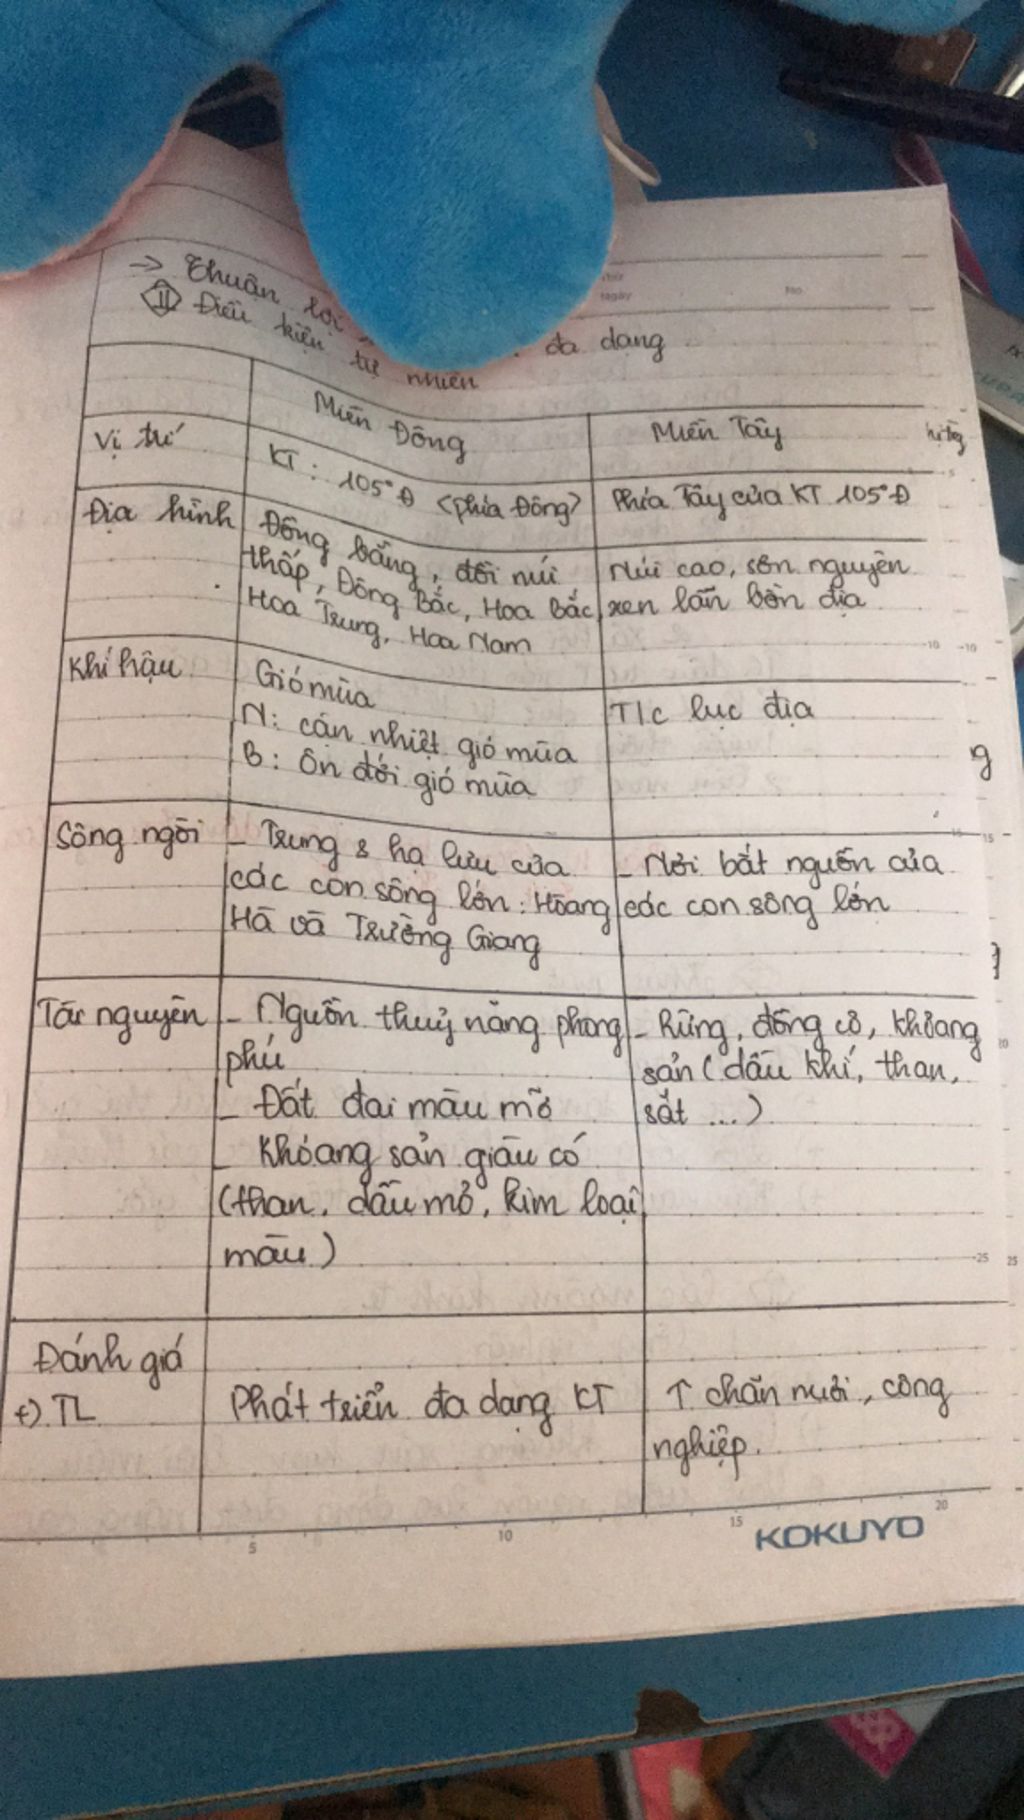 → Thuận lợi
II Điều kiện tự nhiên
đa dạng
Miền Đông
Miền Tây
Vị trí
KT: 105°Đ (phía Đông)
Phía Tây của KT 105°Đ
Địa hình
Đồng bằng, đồi núi
thấp, Đông Bắc, Hoa Bắc,
Hoa Trung, Hoa Nam
Núi cao, sơn nguyên
xen lẫn bồn địa
Khí hậu
Gió mùa
N: cận nhiệt gió mùa
B: ôn đới gió mùa
T/c lục địa
Sông ngòi
- Trung & hạ lưu của
các con sông lớn: Hoàng
Hà và Trường Giang
- Nơi bắt nguồn của
các con sông lớn
Tài nguyên
- Nguồn thuỷ năng phong
phú
- Đất đai màu mỡ
- Khoáng sản giàu có
(than, dầu mỏ, kim loại
màu)
- Rừng, đồng cỏ, khoáng
sản (dầu khí, than,
sắt ...)
Đánh giá
+) TL
Phát triển đa dạng KT
↑ chăn nuôi, công
nghiệp.
5
10
15
20
KOKUYO